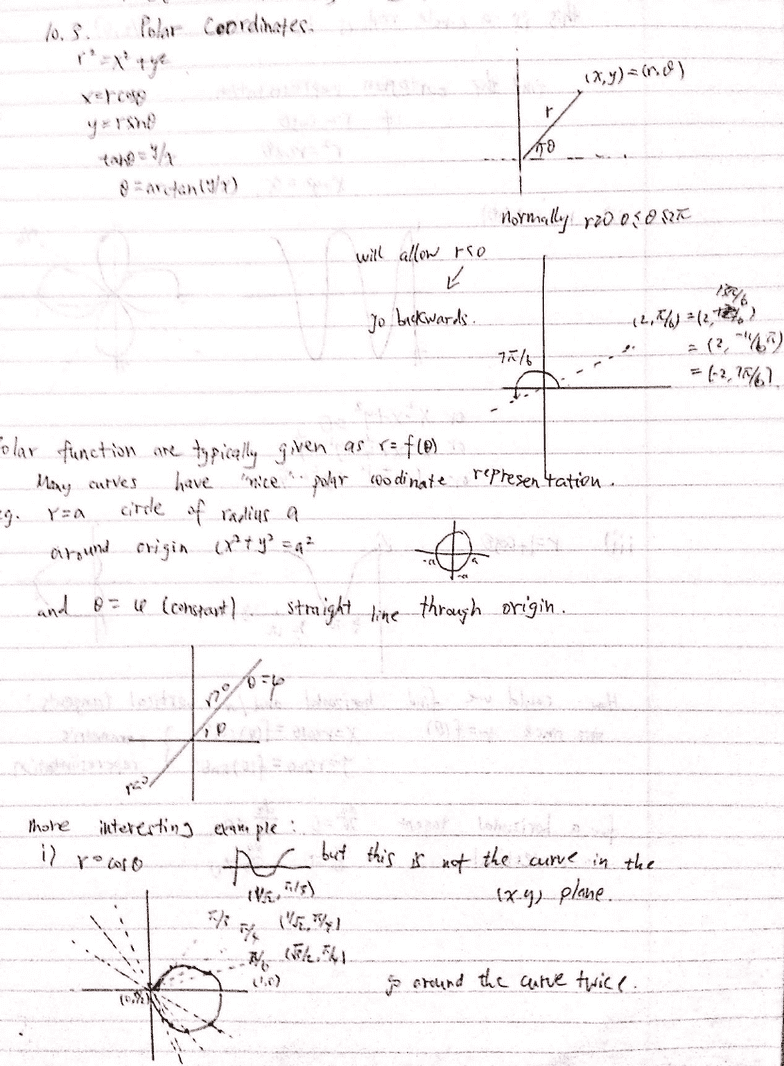 10.5. Polar Coordinates.
r² = x² + y²
x = r cosθ
y = r sinθ
tanθ = y/x
θ = arctan(y/x)
(x,y) = (r,θ)
r
θ
normally r≥0 0≤θ≤2π
will allow r≤0
go backwards.
7π/6
13π/6
(2, π/6) = (2,
= (2, -11/6π)
= (-2, 7π/6)
olar function are typically given as r = f(θ)
Many curves have "nice" polar coodinate representation.
g. r=a circle of radius a
around origin (x²+y²=a²
-a a
-a
and θ = φ (constant). straight line through origin.
r>0 θ=φ
θ
r<0
more interesting example:
i) r = cosθ but this is not the curve in the
(x.y) plane.
π/3
π/4 (1/√2, π/4)
π/6 (√3/2, π/4)
(1,0)
go around the curve twice.